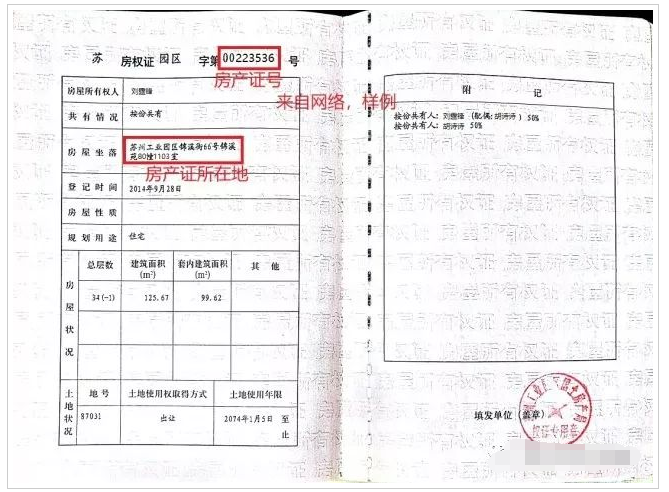 苏 房权证 园区 字第 00223536 号
房产证号
来自网络，样例
房屋所有权人 刘雪锋
共有情况 按份共有
房屋坐落 苏州工业园区锦溪街66号锦溪苑80幢1103室
房产证所在地
登记时间 2014年9月28日
房屋性质
规划用途 住宅
房屋状况
总层数 建筑面积(m²) 套内建筑面积(m²) 其他
34(-1) 125.67 99.62
土地状况
地号 土地使用权取得方式 土地使用年限
87031 出让 2074年1月5日 至 止
附 记
按份共有人: 刘雪锋 (配偶: 胡涛涛) 50%
按份共有人: 胡涛涛 50%
填发单位 (盖章)